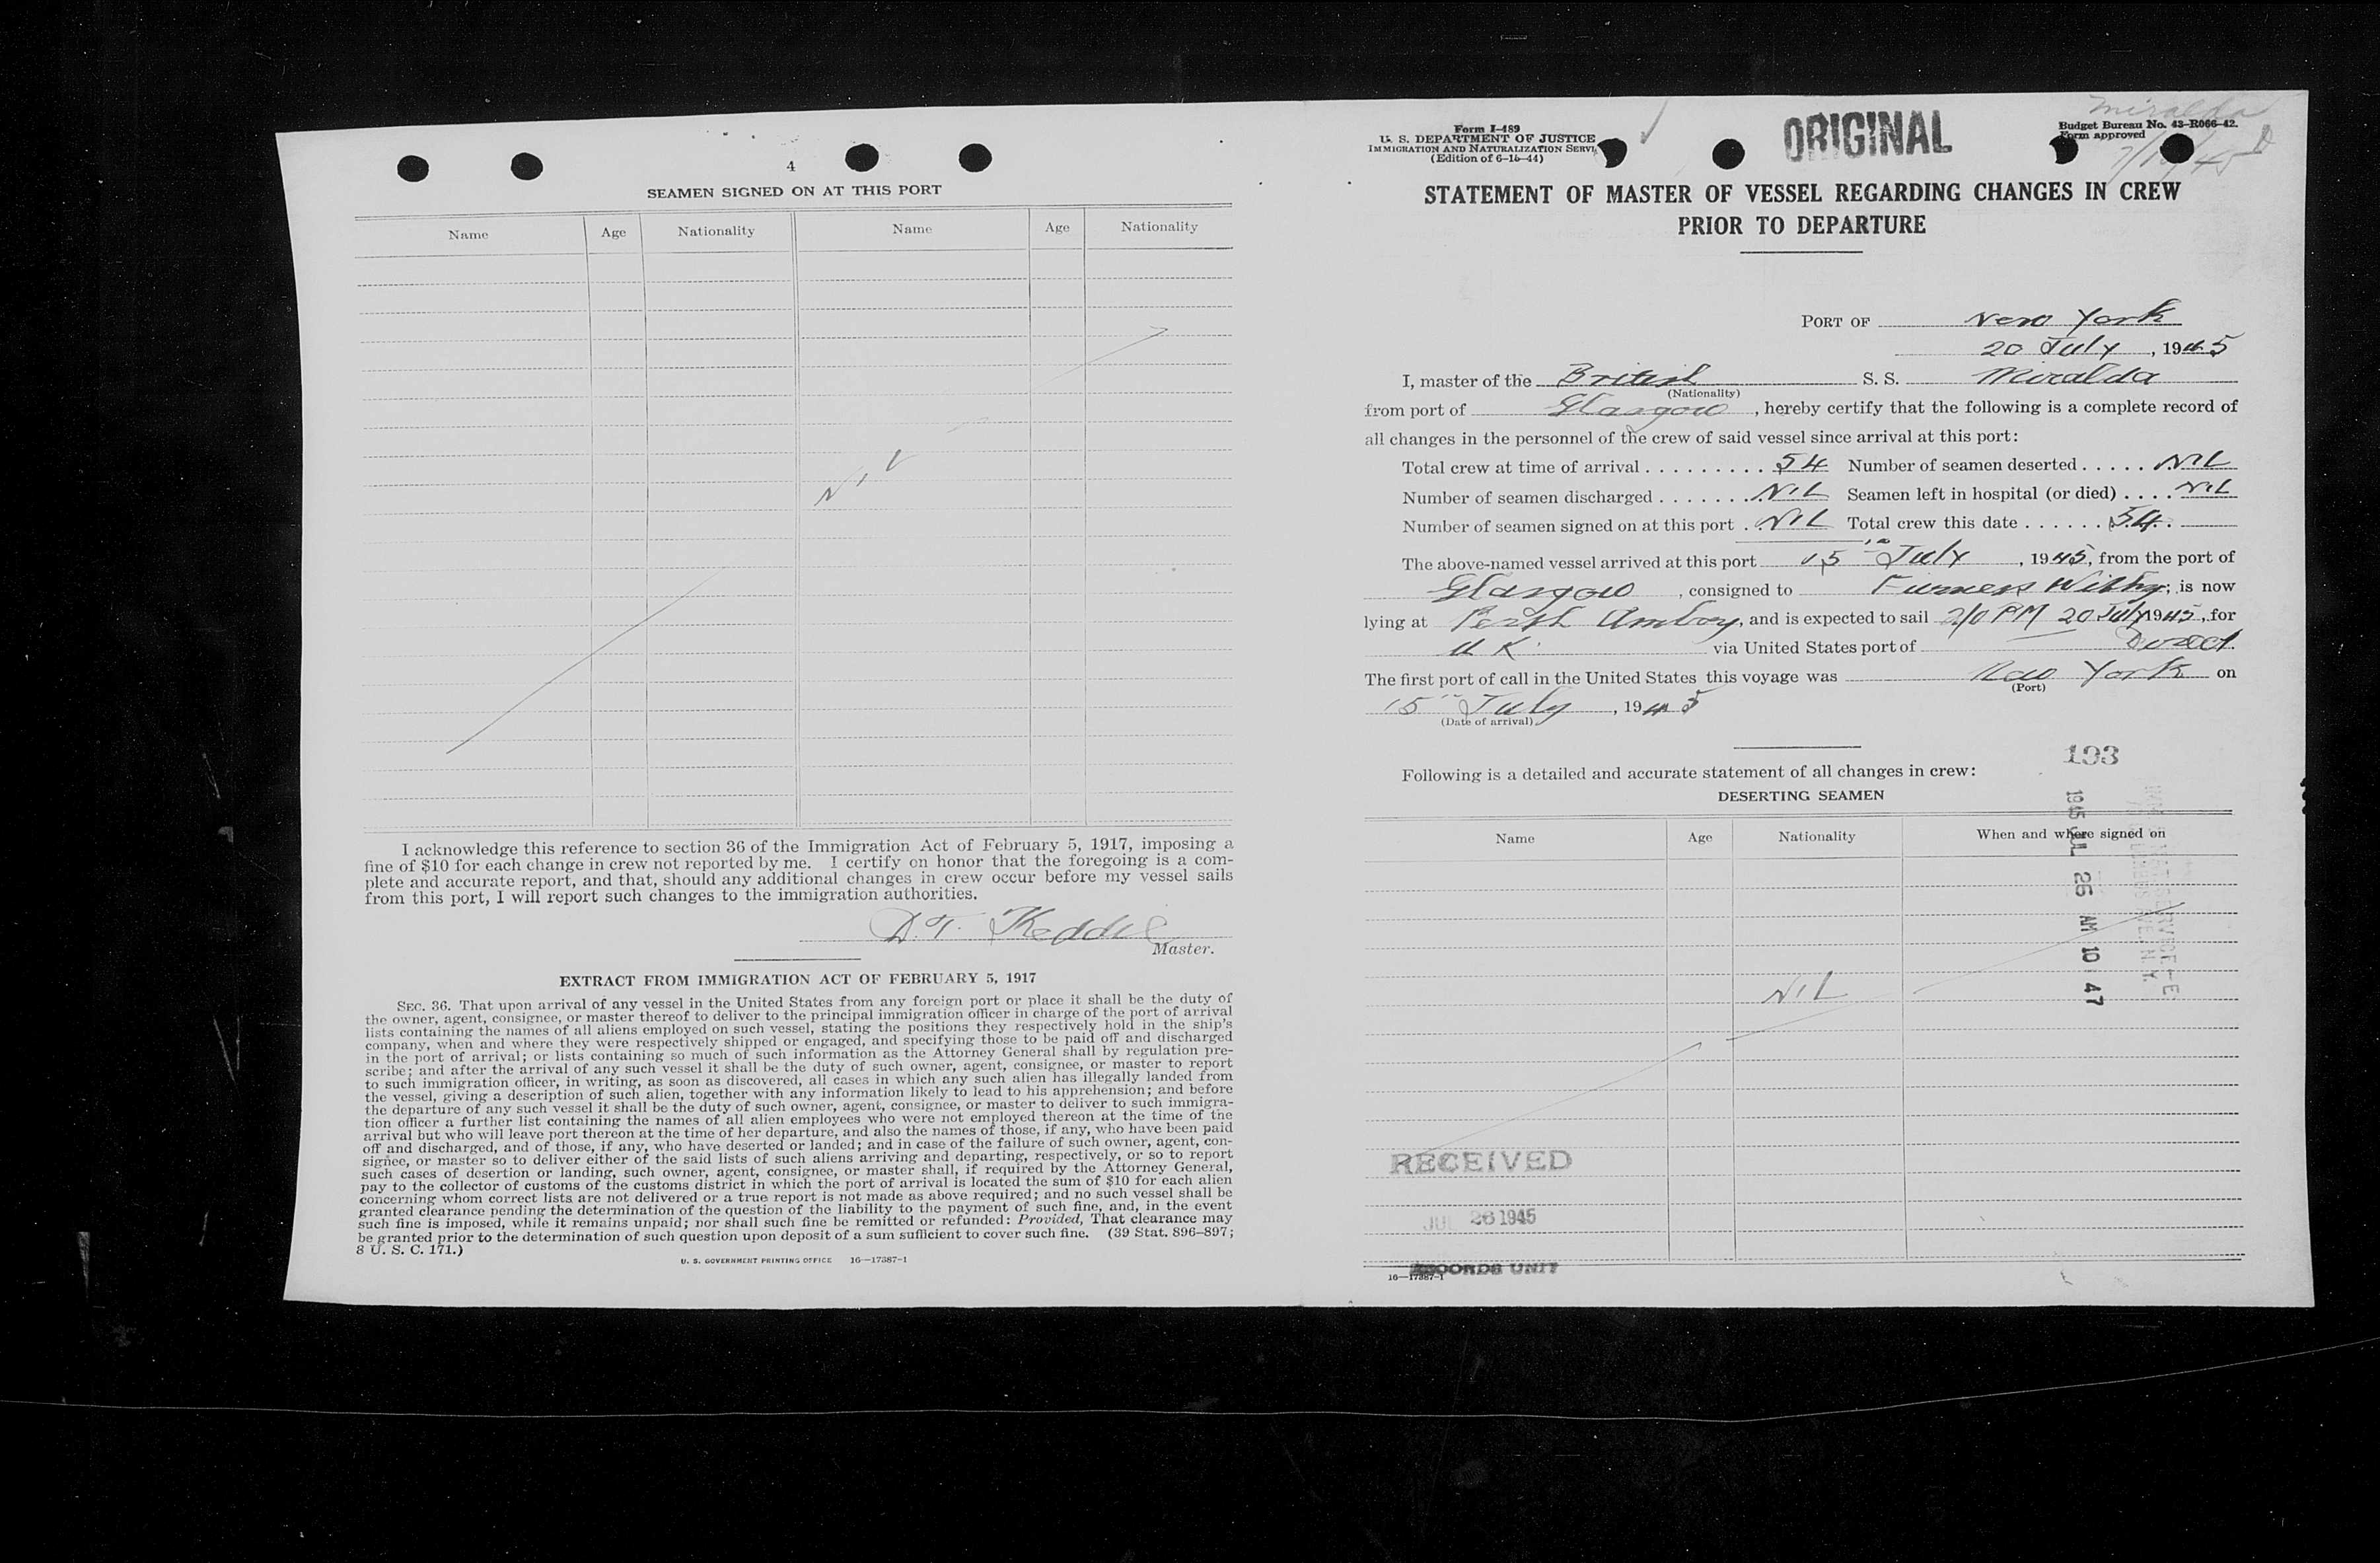 4
SEAMEN SIGNED ON AT THIS PORT
Name Age Nationality Name Age Nationality
Nil
I acknowledge this reference to section 36 of the Immigration Act of February 5, 1917, imposing a
fine of $10 for each change in crew not reported by me. I certify on honor that the foregoing is a com-
plete and accurate report, and that, should any additional changes in crew occur before my vessel sails
from this port, I will report such changes to the immigration authorities.
D. T. Keddie
Master.
EXTRACT FROM IMMIGRATION ACT OF FEBRUARY 5, 1917
SEC. 36. That upon arrival of any vessel in the United States from any foreign port or place it shall be the duty of
the owner, agent, consignee, or master thereof to deliver to the principal immigration officer in charge of the port of arrival
lists containing the names of all aliens employed on such vessel, stating the positions they respectively hold in the ship's
company, when and where they were respectively shipped or engaged, and specifying those to be paid off and discharged
in the port of arrival; or lists containing so much of such information as the Attorney General shall by regulation pre-
scribe; and after the arrival of any such vessel it shall be the duty of such owner, agent, consignee, or master to report
to such immigration officer, in writing, as soon as discovered, all cases in which any such alien has illegally landed from
the vessel, giving a description of such alien, together with any information likely to lead to his apprehension; and before
the departure of any such vessel it shall be the duty of such owner, agent, consignee, or master to deliver to such immigra-
tion officer a further list containing the names of all alien employees who were not employed thereon at the time of the
arrival but who will leave port thereon at the time of her departure, and also the names of those, if any, who have been paid
off and discharged, and of those, if any, who have deserted or landed; and in case of the failure of such owner, agent, con-
signee, or master so to deliver either of the said lists of such aliens arriving and departing, respectively, or so to report
such cases of desertion or landing, such owner, agent, consignee, or master shall, if required by the Attorney General,
pay to the collector of customs of the customs district in which the port of arrival is located the sum of $10 for each alien
concerning whom correct lists are not delivered or a true report is not made as above required; and no such vessel shall be
granted clearance pending the determination of the question of the liability to the payment of such fine, and, in the event
such fine is imposed, while it remains unpaid; nor shall such fine be remitted or refunded: Provided, That clearance may
be granted prior to the determination of such question upon deposit of a sum sufficient to cover such fine. (39 Stat. 896–897;
8 U. S. C. 171.)
U. S. GOVERNMENT PRINTING OFFICE 16—17387-1
Form I-489
U. S. DEPARTMENT OF JUSTICE
IMMIGRATION AND NATURALIZATION SERVI
(Edition of 6-15-44)
ORIGINAL
Miralda
Budget Bureau No. 43-R066-42.
Form approved
STATEMENT OF MASTER OF VESSEL REGARDING CHANGES IN CREW
PRIOR TO DEPARTURE
PORT OF New York
20 July, 1945
I, master of the British S. S. Miralda
(Nationality)
from port of Glasgow, hereby certify that the following is a complete record of
all changes in the personnel of the crew of said vessel since arrival at this port:
Total crew at time of arrival 54 Number of seamen deserted NIL
Number of seamen discharged NIL Seamen left in hospital (or died) NIL
Number of seamen signed on at this port NIL Total crew this date 54
The above-named vessel arrived at this port 15th July, 1945, from the port of
Glasgow, consigned to Furness Withy; is now
lying at Perth Amboy, and is expected to sail 2/0 PM 20 July 1945, for
U K via United States port of Direct
The first port of call in the United States this voyage was New York on
(Port)
15th July, 1945
(Date of arrival)
193
Following is a detailed and accurate statement of all changes in crew:
DESERTING SEAMEN
Name Age Nationality When and where signed on
1945 JUL 26 AM 10 47
NIL
RECEIVED
JUL 26 1945
RECORDS UNIT
16—17387-1